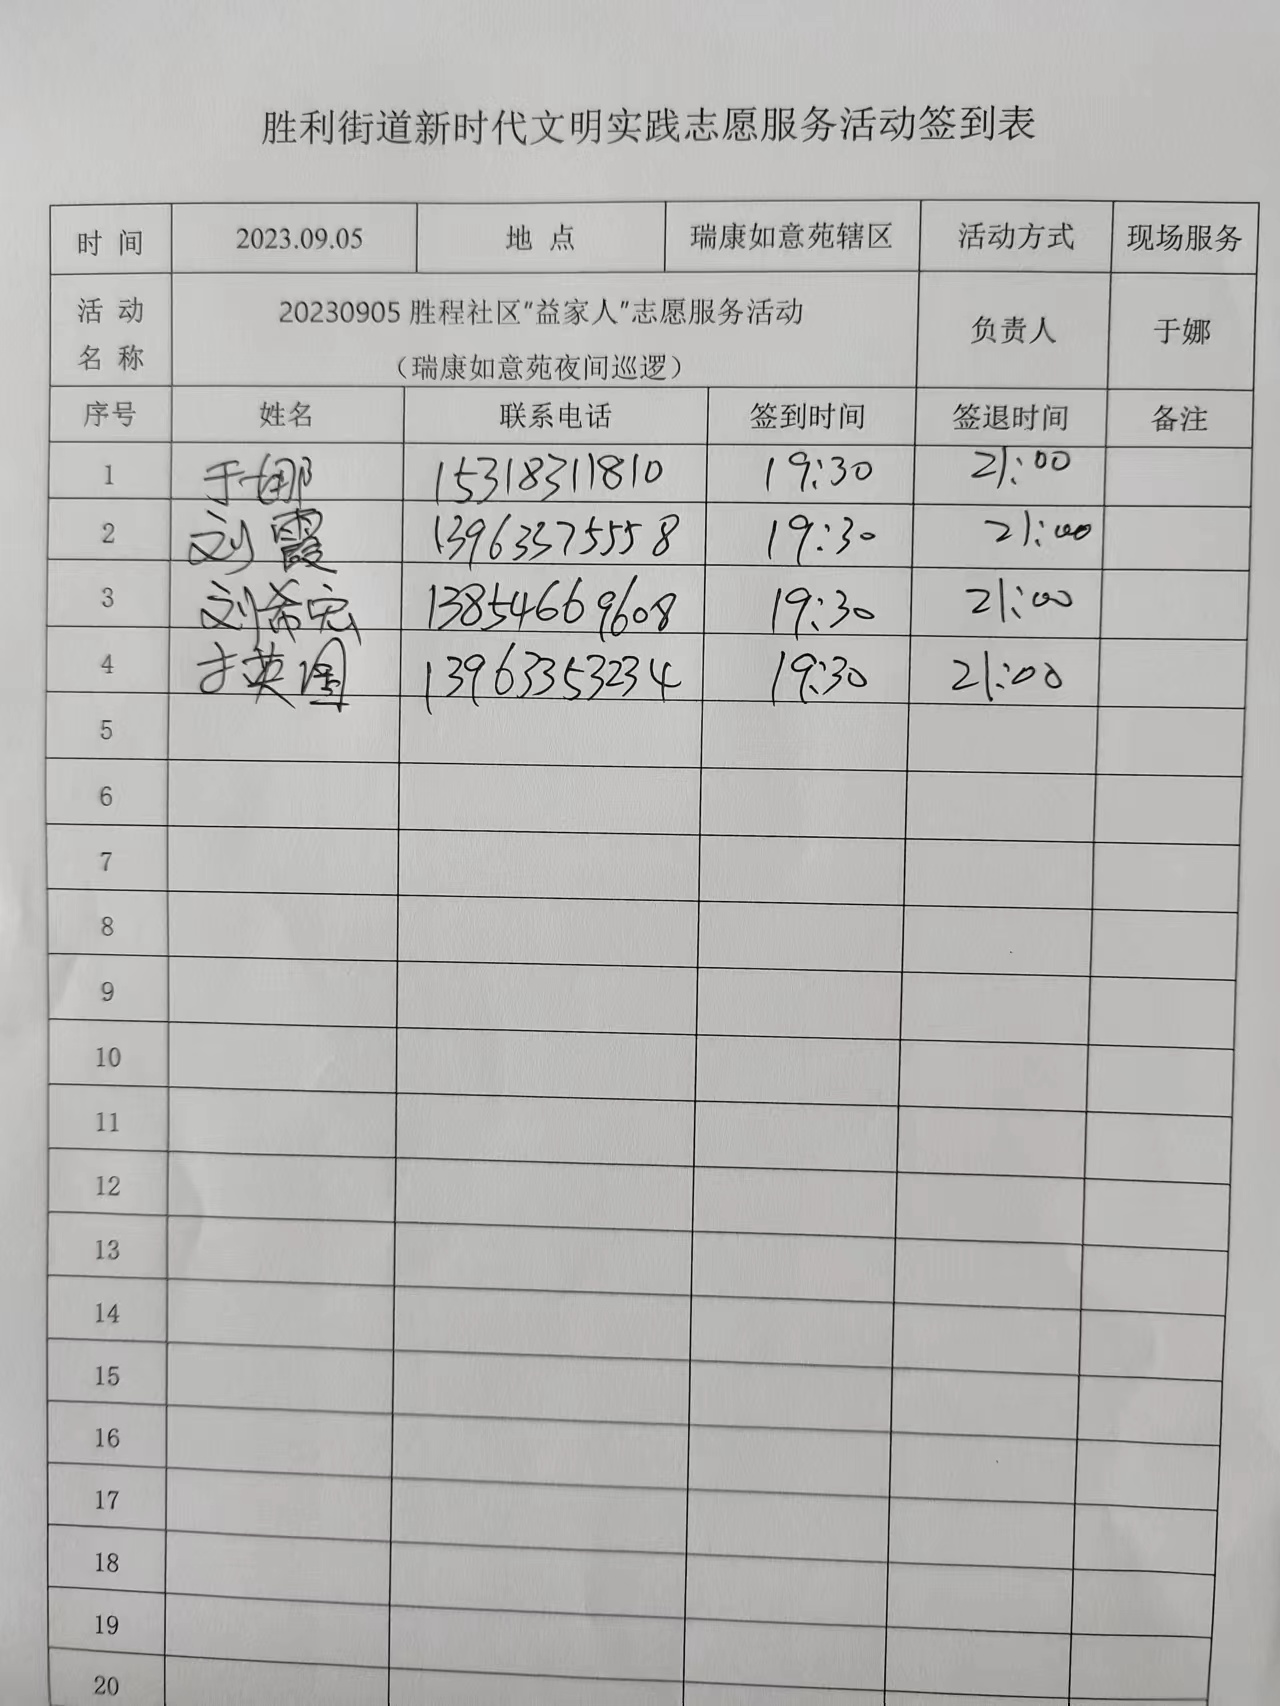 胜利街道新时代文明实践志愿服务活动签到表
时 间 2023.09.05 地 点 瑞康如意苑辖区 活动方式 现场服务
活 动 名 称 20230905胜程社区“益家人”志愿服务活动 （瑞康如意苑夜间巡逻） 负责人 于娜
序号 姓名 联系电话 签到时间 签退时间 备注
1 于娜 15318311810 19:30 21:00
2 刘霞 13963375558 19:30 21:00
3 刘希宏 13854669608 19:30 21:00
4 英 13963353234 19:30 21:00
5
6
7
8
9
10
11
12
13
14
15
16
17
18
19
20